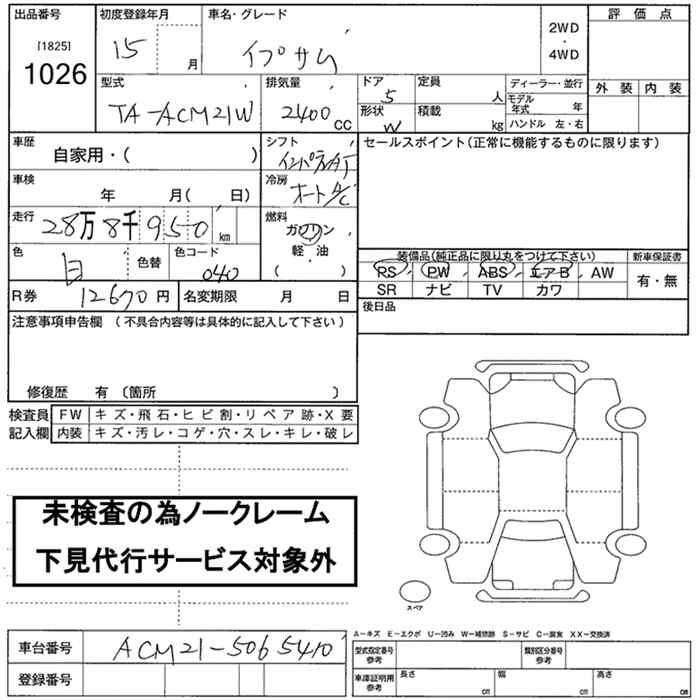 出品番号 初度登録年月 車名・グレード 評価点
[1825] 15 月 イプサム 2WD・4WD
1026
型式 排気量 ドア 定員 ディーラー・並行 外装 内装
TA-ACM21W 2400 CC 5 人 モデル年式 年
形状 積載 ハンドル 左・右
W kg
車歴 自家用・( ) シフト インパネAT セールスポイント(正常に機能するものに限ります)
車検 年 月( 日) 冷房 オートA/C
走行 28万8千950 km 燃料 ガソリン
軽・油
( )
色 白 色替 色コード 040
装備品(純正品に限り丸をつけて下さい) 新車保証書
PS PW ABS エアB AW 有・無
SR ナビ TV カワ
R券 12670円 名変期限 月 日 後日品
注意事項申告欄 (不具合内容等は具体的に記入して下さい)
修復歴 有 〔箇所 )
検査員 FW キズ・飛石・ヒビ割・リペア跡・X要
記入欄 内装 キズ・汚レ・コゲ・穴・スレ・キレ・破レ
未検査の為ノークレーム
下見代行サービス対象外
スペア
A－キズ E－エクボ U－凹み W－補修跡 S－サビ C－腐食 XX－交換済
車台番号 ACM21-5065410 型式指定番号 参考 類別区分番号 参考
登録番号 車庫証明用 参考 長さ cm 幅 cm 高さ cm